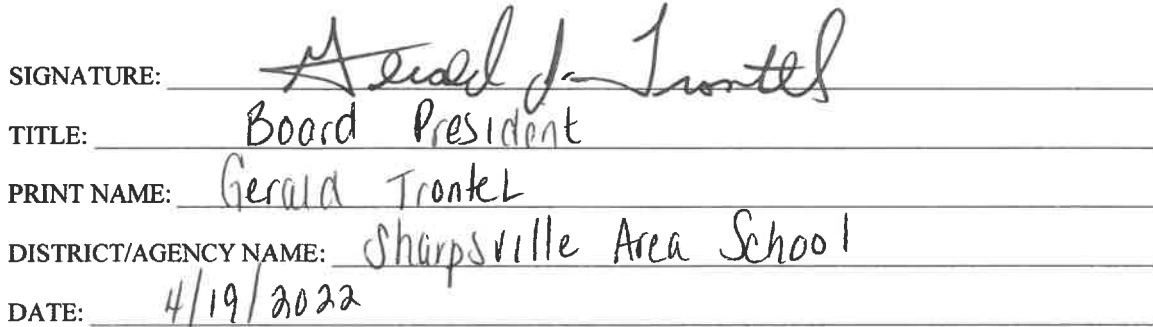 SIGNATURE: Gerald J. Trontel
TITLE: Board President
PRINT NAME: Gerald Trontel
DISTRICT/AGENCY NAME: Sharpsville Area School
DATE: 4/19/2022